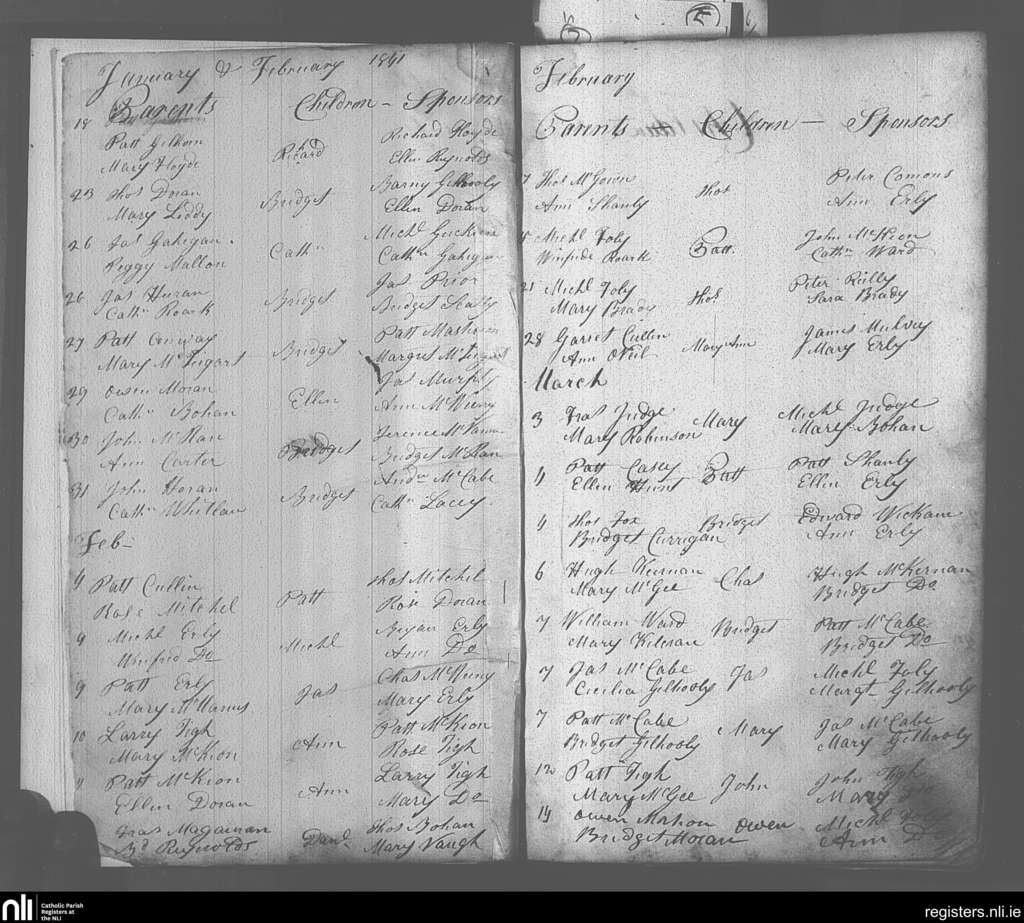 January & February 1841
Parents Children - Sponsors
18 Patt Gilhorn Richard Richard Floyde
Mary Floyde Ellen Reynolds
23 Thos Doran Bridget Barny Gilhooly
Mary Liddy Ellen Doran
26 Jas Gahigan Cathn Michl Guckian
Peggy Mallon Cathn Gahigan
26 Jas Huran Bridget Jas Prior
Cathn Roark Bridget
27 Patt Conway Bridget Patt
Mary McTegart Margret McTegart
29 Owen Moran Ellen Jas Murphy
Cathn Bohan Ann
30 John McRan Bridget Terence
Ann Carter Bridget McRan
31 John Horan Bridget Andw McCabe
Cathn Whitlau Cathn Lacey
Feb-
4 Patt Cullin Patt Thos Mitchel
Rose Mitchel Rose Doran
9 Michl Erly Michl Bryan Erly
Winifred Do Ann Do
9 Patt Erly Jas Chas
Mary McManus Mary Erly
10 Larry Tigh Ann Patt McKeon
Mary McKeon Rose Tigh
11 Patt McKeon Ann Larry Tigh
Ellen Doran Mary Do
Fras Magairnan Danl Thos Bohan
Bd Reynolds Mary Vaugh
February
Parents Children - Sponsors
7 Thos McGowen Thos Peter Comons
Ann Shanly Ann Erly
Michl Foly Patt. John McKeon
Winfride Roark Cathn Ward
21 Michl Foly Thos Peter Rilly
Mary Brady Sara Brady
28 Garret Cullin Mary Ann James Mulvey
Ann ONeil Mary Erly
March
3 Fras Judge Mary Michl Judge
Mary Robinson Mary Bohan
4 Patt Casey Patt Patt Shanly
Ellen Hunt Ellen Erly
4 Thos Fox Bridget Edward Wickam
Bridget Currigan Ann Erly
6 Hugh Kiernan Chas Hugh McKernan
Mary McGee Bridget Do
7 William Ward Bridget Patt McCabe
Mary Kileran Bridget Do
7 Jas McCabe Jas Michl Foly
Cecilia Gilhooly Margt Gilhooly
7 Patt McCabe Mary Jas McCabe
Bridget Gilhooly Mary Gilhooly
12 Patt Tigh John John Tigh
Mary McGee Mary Do
14 Owen Mahon Owen Michl
Bridget Moran Ann Do
nli Catholic Parish
Registers at
the NLI
registers.nli.ie